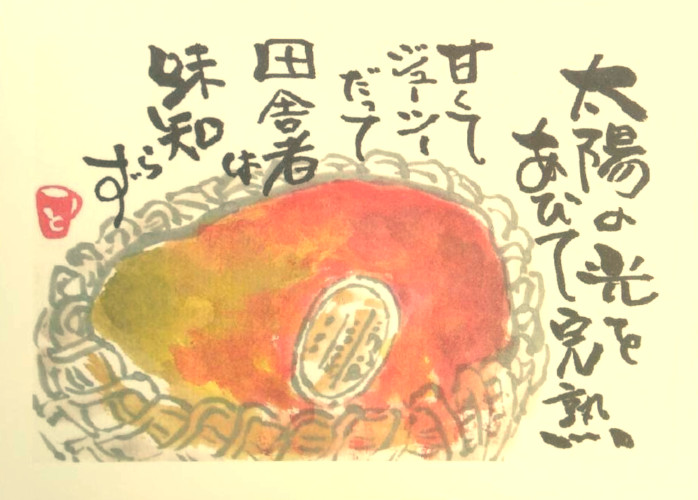 太陽の光を
あびて完熟
甘くて
ジューシー
だって
田舎者
は
味知
らず
と